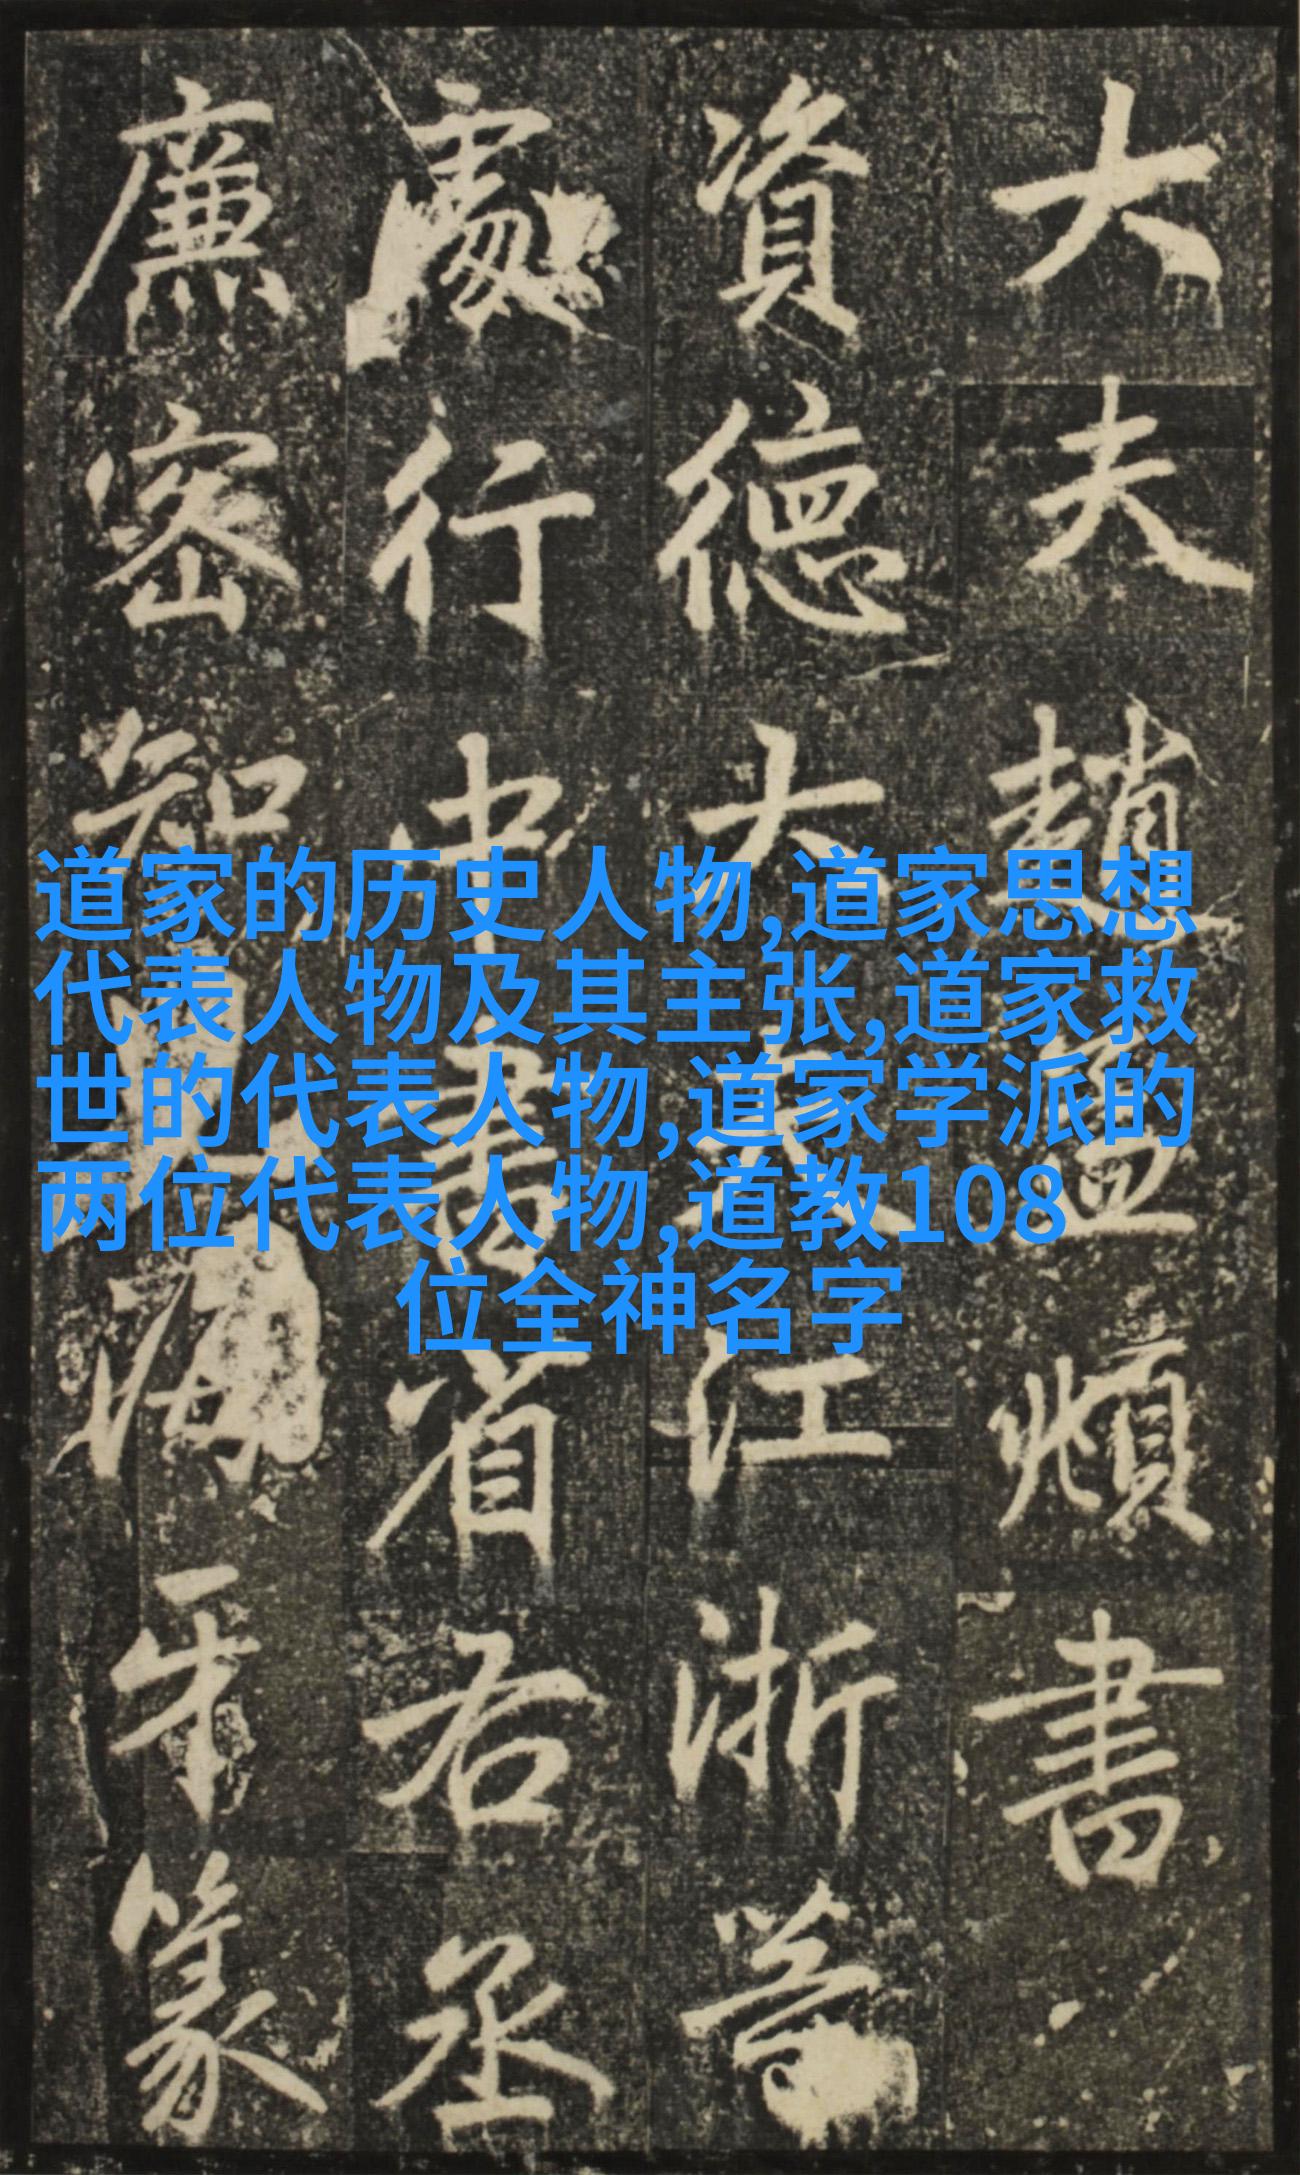 大夫趙孟頫書
資德大夫江浙等
處行中書省右丞
廉密知海牙篆
道家的历史人物,道家思想
代表人物及其主张,道家救
世的代表人物,道家学派的
两位代表人物,道教108
位全神名字